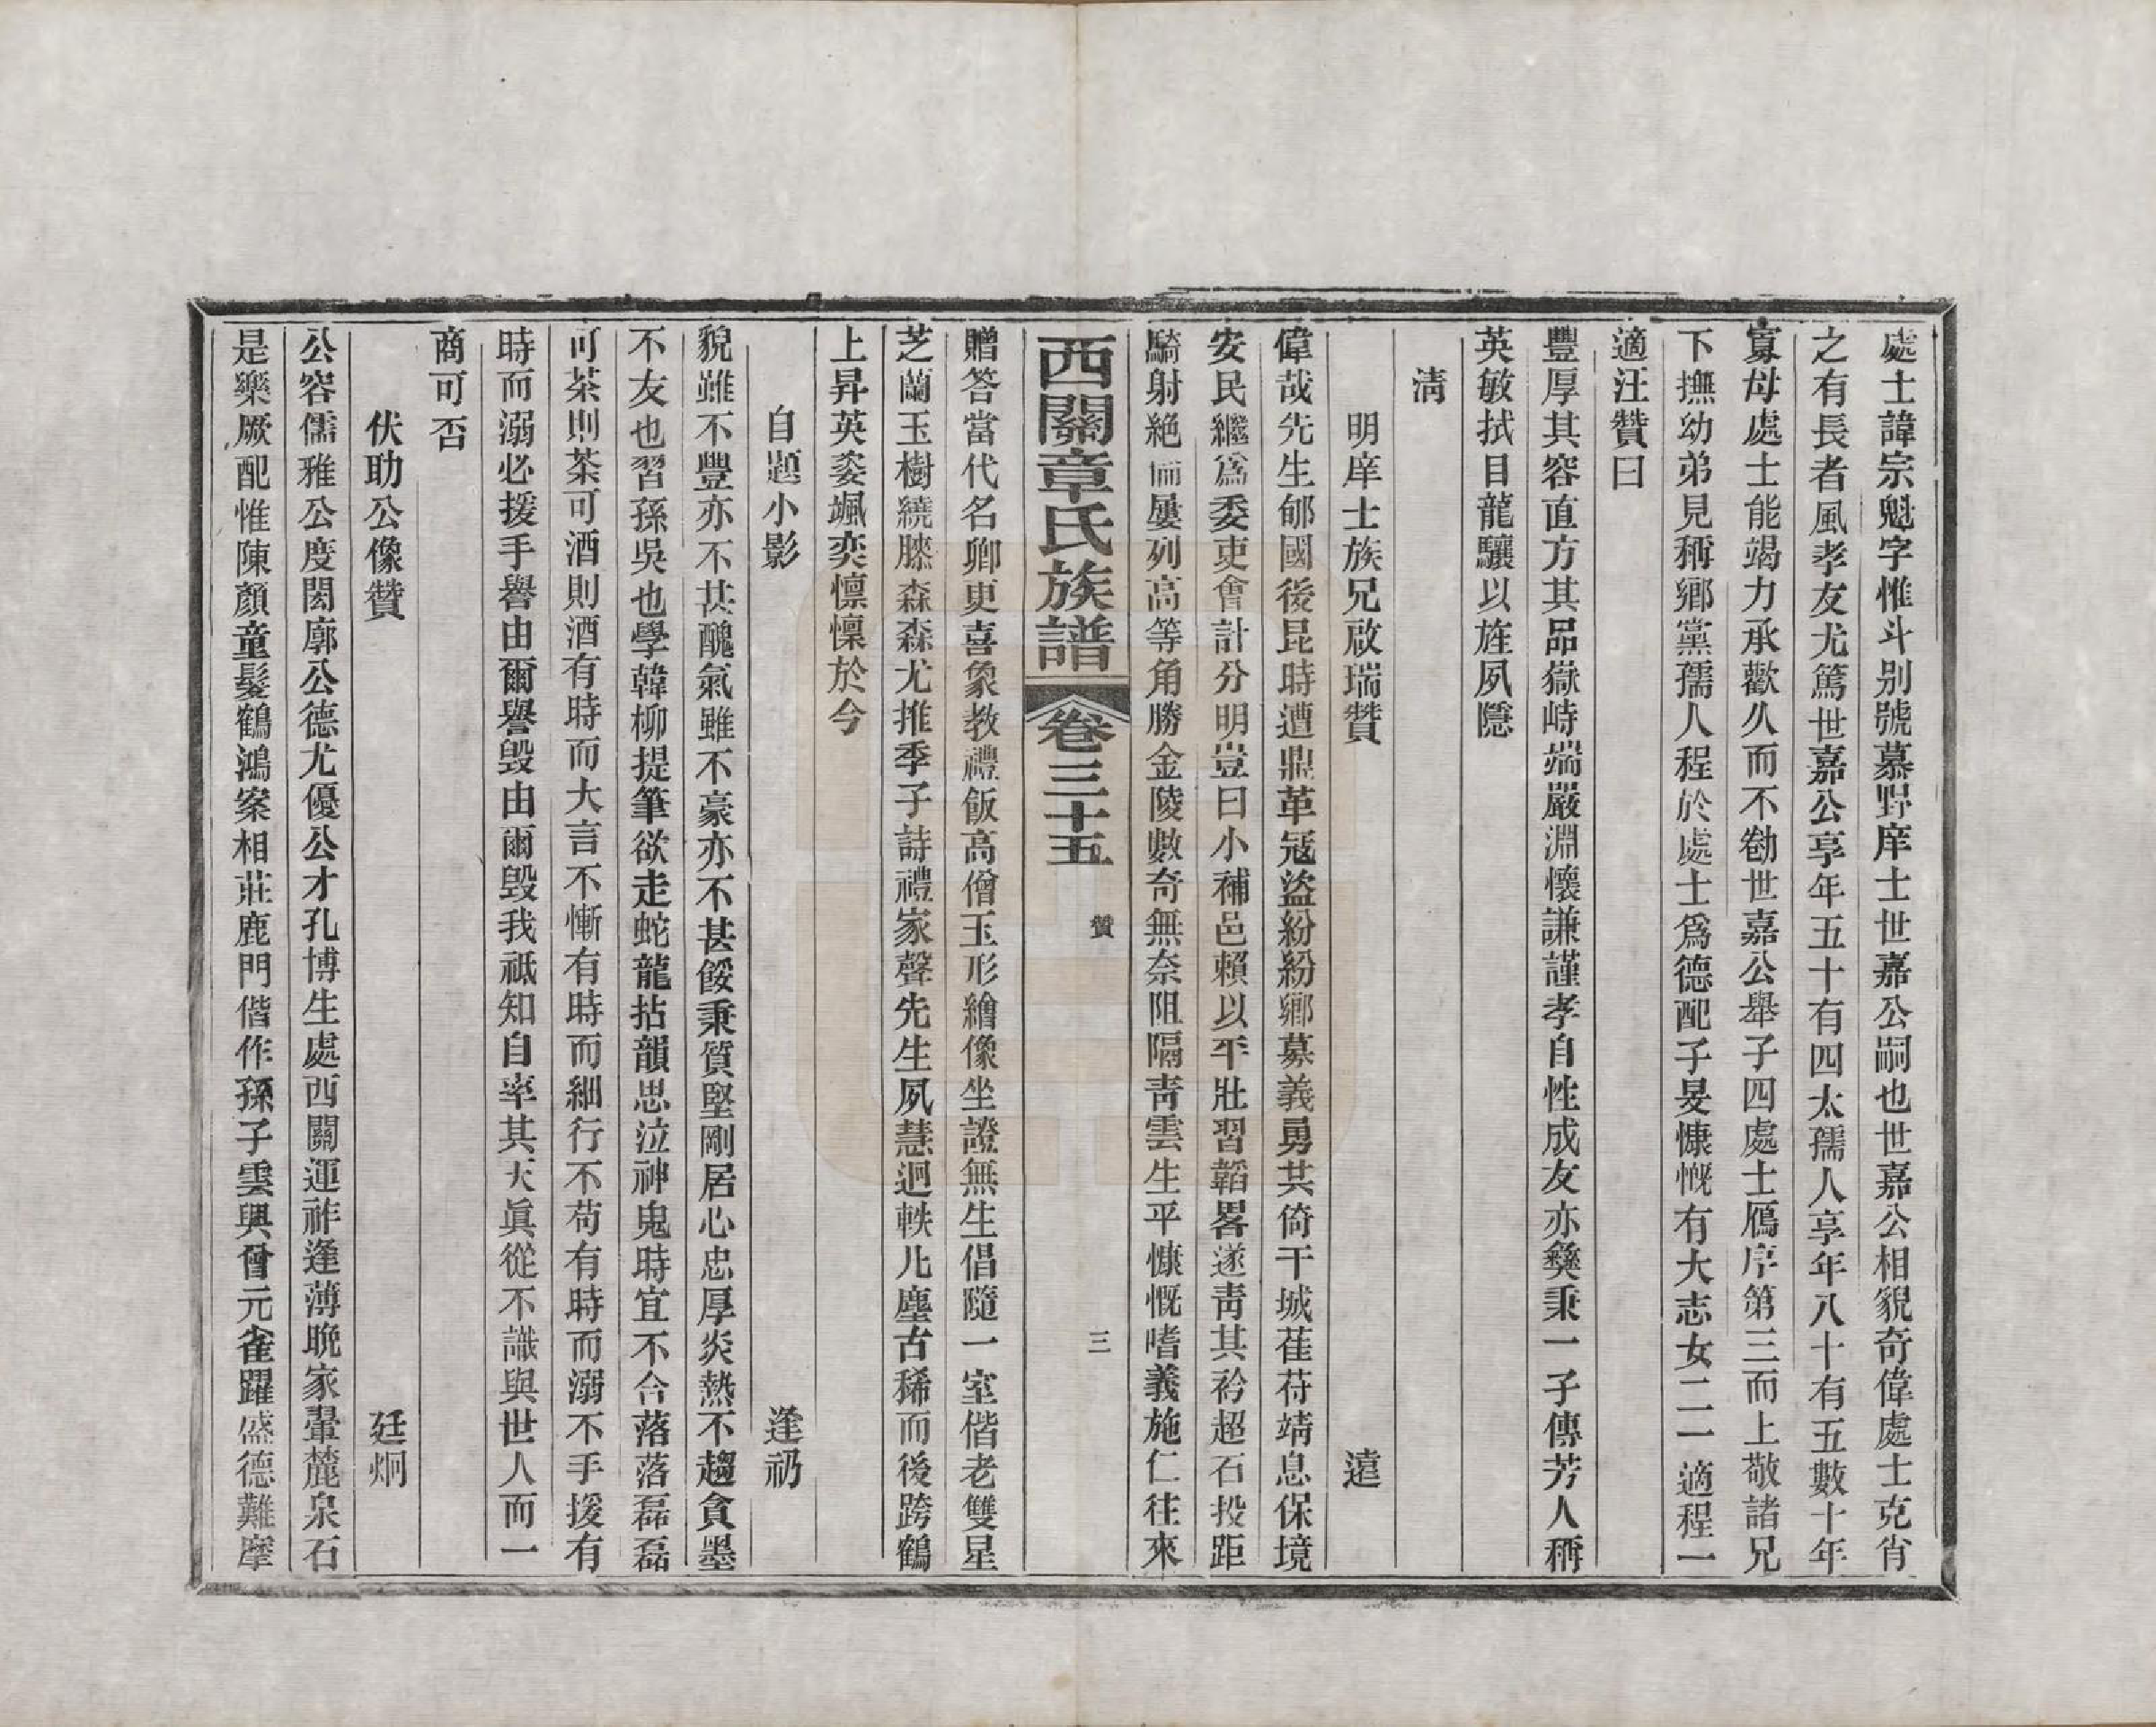 處士諱宗魁字惟斗别號慕野庠士世嘉公嗣也世嘉公相貌奇偉處士克肖
之有長者風孝友尤篤世嘉公享年五十有四太孺人享年八十有五數十年
寡母處士能竭力承歡久而不勌世嘉公舉子四處士鴈序第三而上敬諸兄
下撫幼弟見稱鄉黨孺人程於處士爲德配子旻慷慨有大志女二一適程一
適汪贊曰
豐厚其容直方其品嶽峙端嚴淵懷謙謹孝自性成友亦彝秉一子傳芳人稱
英敏拭目龍驤以旌夙隱
清
明庠士族兄啟瑞贊 遠
偉哉先生郇國後昆時遭鼎革寇盜紛紛鄉募義勇其倚干城萑苻靖息保境
安民繼爲委吏會計分明豈曰小補邑賴以平壯習韜畧遂靑其衿超石投距
騎射絶倫屢列高等角勝金陵數奇無奈阻隔靑雲生平慷慨嗜義施仁往來
西關章氏族譜 卷三十五 贊 三
贈答當代名卿更喜象教禮飯高僧玉形繪像坐證無生倡隨一室偕老雙星
芝蘭玉樹繞膝森森尤推季子詩禮家聲先生夙慧迥軼凡塵古稀而後跨鶴
上昇英姿颯奕懍懍於今
自題小影 逢礽
貌雖不豐亦不甚醜氣雖不豪亦不甚餒秉質堅剛居心忠厚炎熱不趨貪墨
不友也習孫吳也學韓柳提筆欲走蛇龍拈韻思泣神鬼時宜不合落落磊磊
可茶則茶可酒則酒有時而大言不慚有時而細行不苟有時而溺不手援有
時而溺必援手譽由爾譽毁由爾毁我祗知自率其天眞從不識與世人而一
商可否
伏助公像贊 廷炯
公容儒雅公度閎廓公德尤優公才孔博生處西關運祚逢薄晚家翬麓泉石
是樂厥配惟陳顏童髮鶴鴻案相莊鹿門偕作孫子雲興曾元雀躍盛德難摩